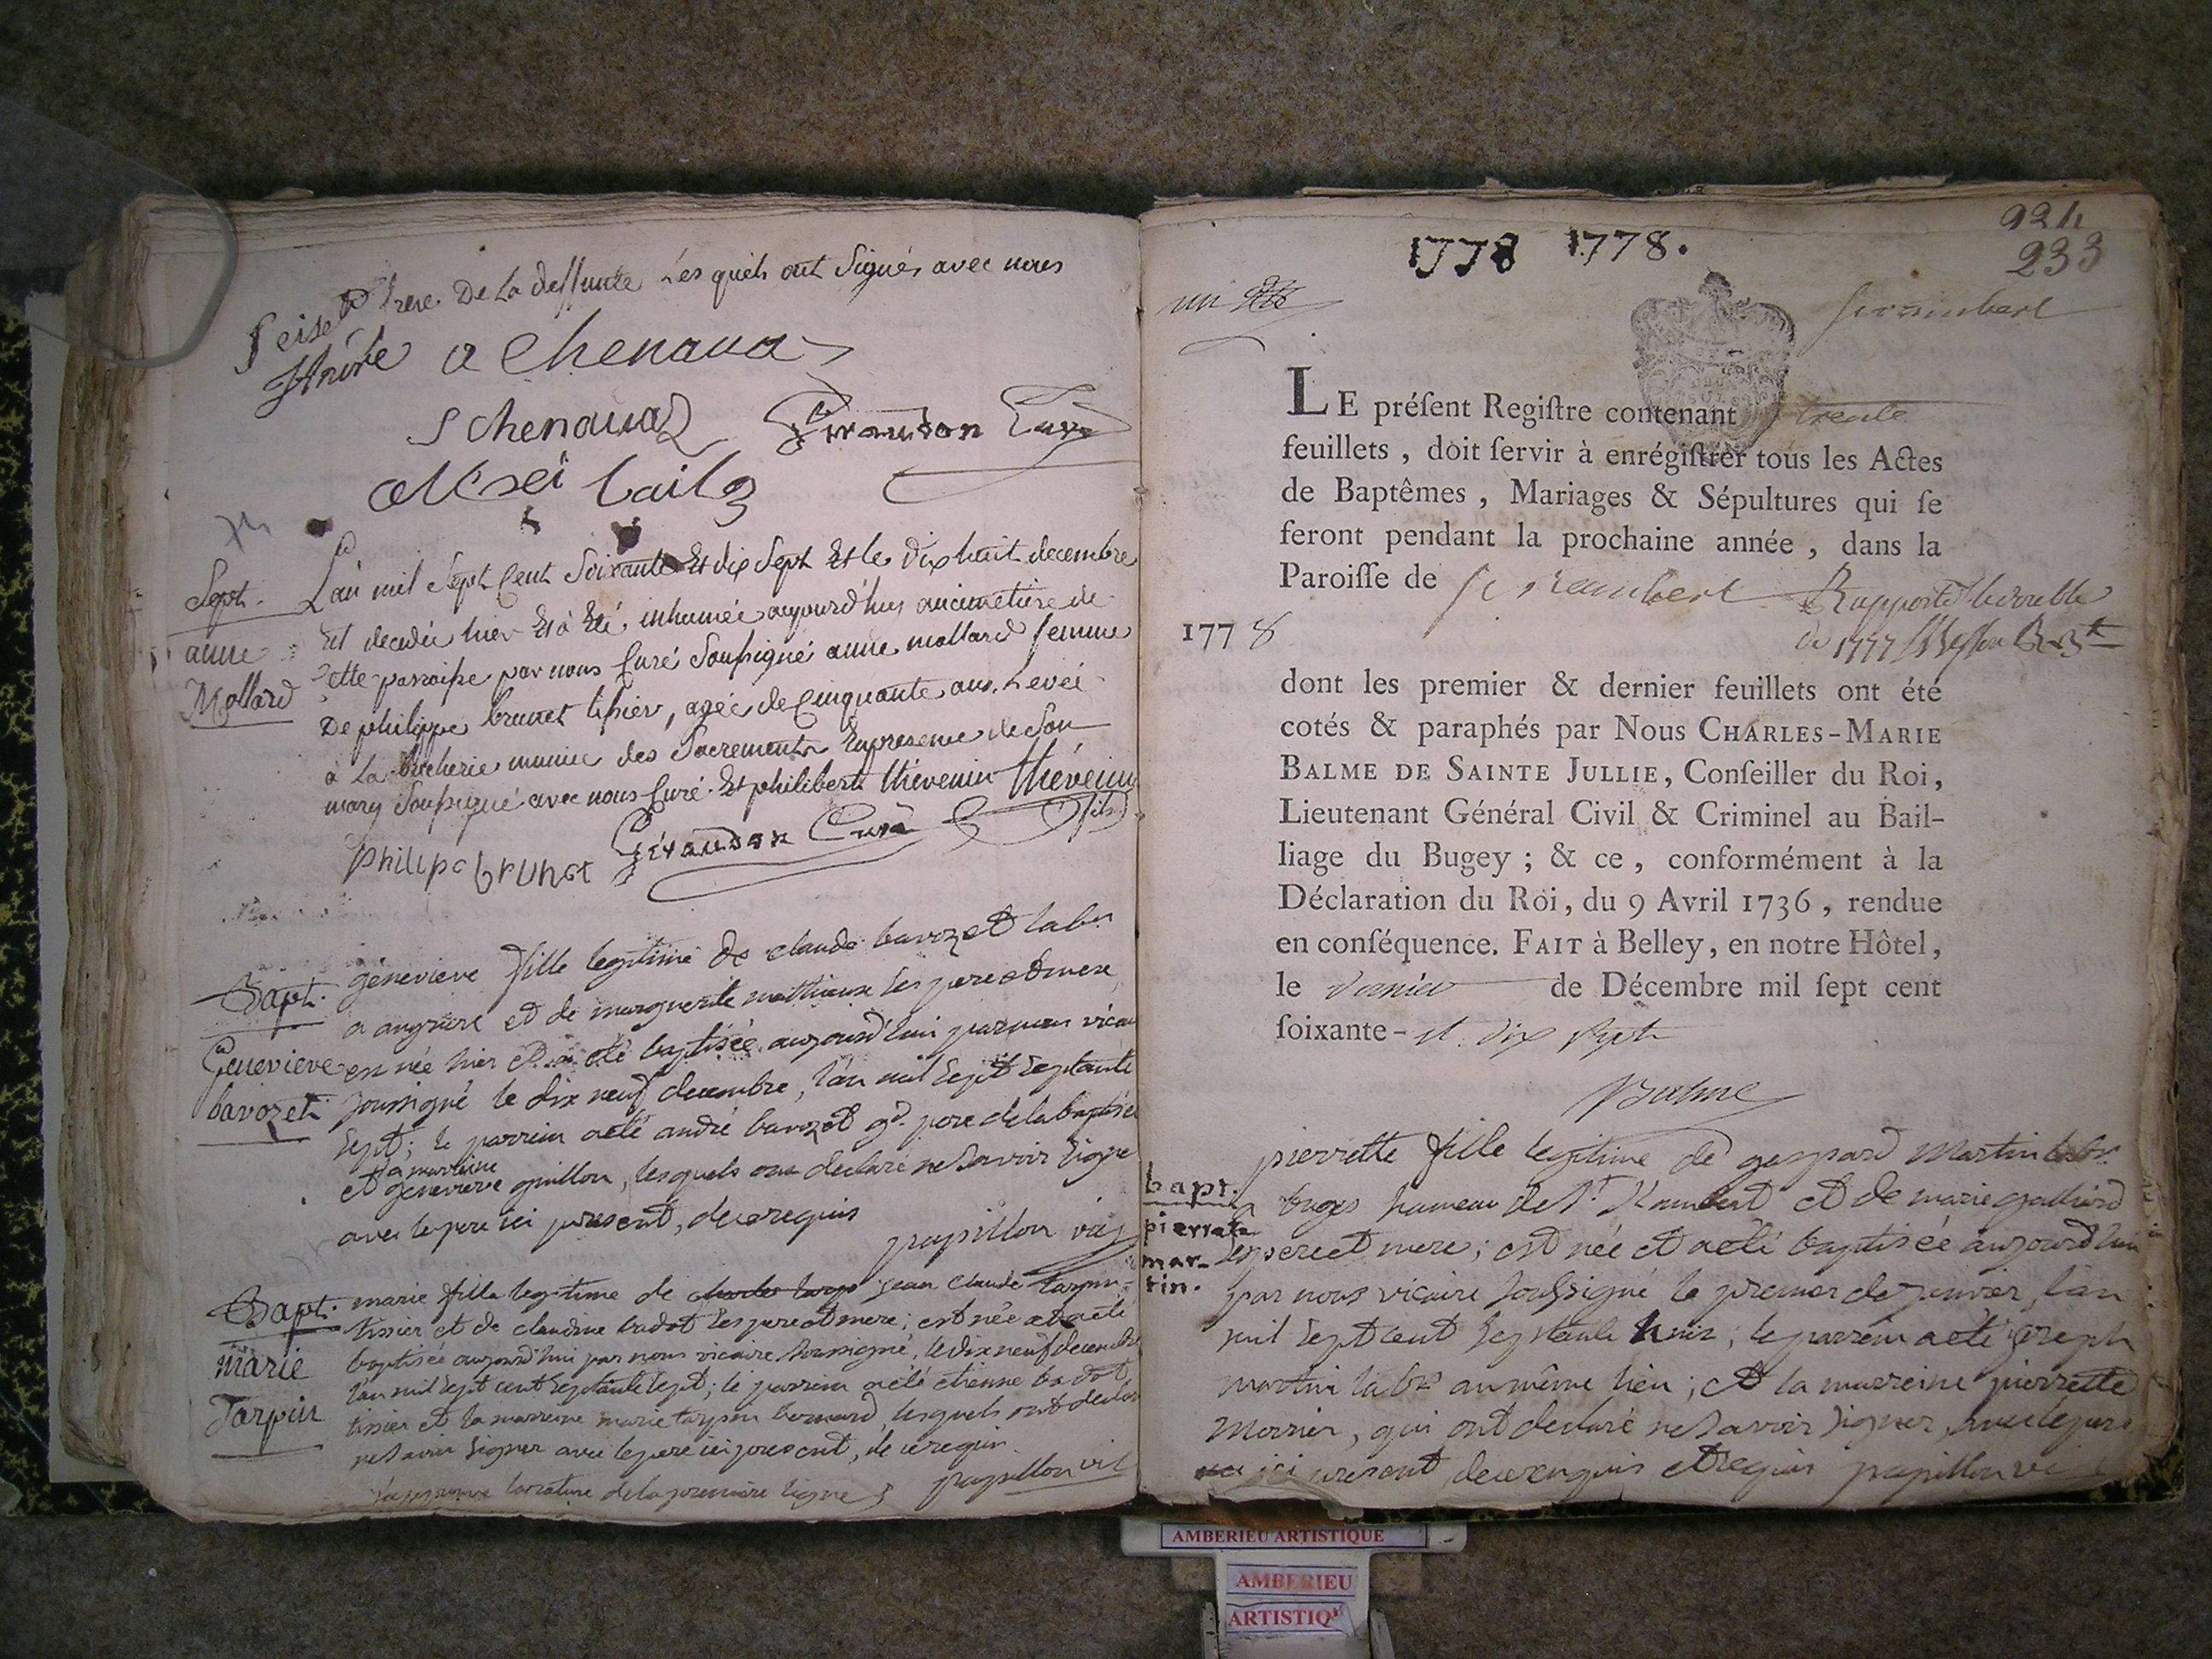 frere De La deffunte Les quels ont Signés avec nous
André a chenavaz
s chenavaz Girandon Curé
Sept.
anne
Mollard
L'an mil Sept Cent Soixante Et dix Sept Et le dix huit decembre
Est decedée hier Et à Eté inhumée aujourd'huy au cimetiere de
Cette parroisse par nous Curé Soussigné anne mollard femme
De philippe brunet tissier, agée de Cinquante ans. Levée
à La bucherie munie des Sacrements En presence de Son
mary Soussigné avec nous Curé. Et philibert thévenin thévenin
fils
philipe brunet Girandon Curé
Bapt.
Genevieve
bavozet
géneviève fille legitime de claude bavozet labr.
a angriere et de marguerite mathieux les pere et mere
est née hier et a été baptisée aujourd'hui par nous vicaire
soussigné le dix neuf decembre, l'an mil sept septante
sept; le parrein a été andré bavozet gd. pere de la baptisée
et la marreine genevieve guillon, lesquels ont declaré ne savoir signer
avec le pere ici present, de ce requis
papillon vic
Bapt.
marie
Tarpin
marie fille legitime de jean claude tarpin
tissier et de claudine badot les pere et mere; est née et a été
baptisée aujourd'hui par nous vicaire soussigné, le dix neuf decembre
l'an mil sept cent septante sept; le parrein a été etienne badot
tissier et la marreine marie tarpin lesquels ont declaré
ne savoir signer avec le pere ici present, de ce requis.
j'approuve la rature de la premiere ligne papillon vic
1778 1778.
224
233
un
st rambert
LE préſent Regiſtre contenant trente
feuillets , doit ſervir à enrégiſtrer tous les Actes
de Baptêmes , Mariages & Sépultures qui ſe
feront pendant la prochaine année , dans la
Paroiſſe de St rambert Rapporté le double
de 1777
1778
dont les premier & dernier feuillets ont été
cotés & paraphés par Nous CHARLES-MARIE
BALME DE SAINTE JULLIE, Conſeiller du Roi,
Lieutenant Général Civil & Criminel au Bail-
liage du Bugey ; & ce , conformément à la
Déclaration du Roi, du 9 Avril 1736 , rendue
en conſéquence. FAIT à Belley, en notre Hôtel,
le dernier de Décembre mil ſept cent
ſoixante- et dix sept
Balme
bapt.
pierrete
mar-
tin.
pierrette fille legitime de gaspard Martin labr.
a buges hameau de St. Rambert et de marie galliard
les pere et mere; est née et a été baptisée aujourd'hui
par nous vicaire soussigné le premier de janvier, l'an
mil sept cent septante huit; le parrein a été joseph
martin labr au même lieu; et la marreine pierrette
Morrier, qui ont declaré ne savoir signer, avec le pere
ici present de ce enquis et requis papillon vic
AMBERIEU ARTISTIQUE
AMBERIEU
ARTISTIQ